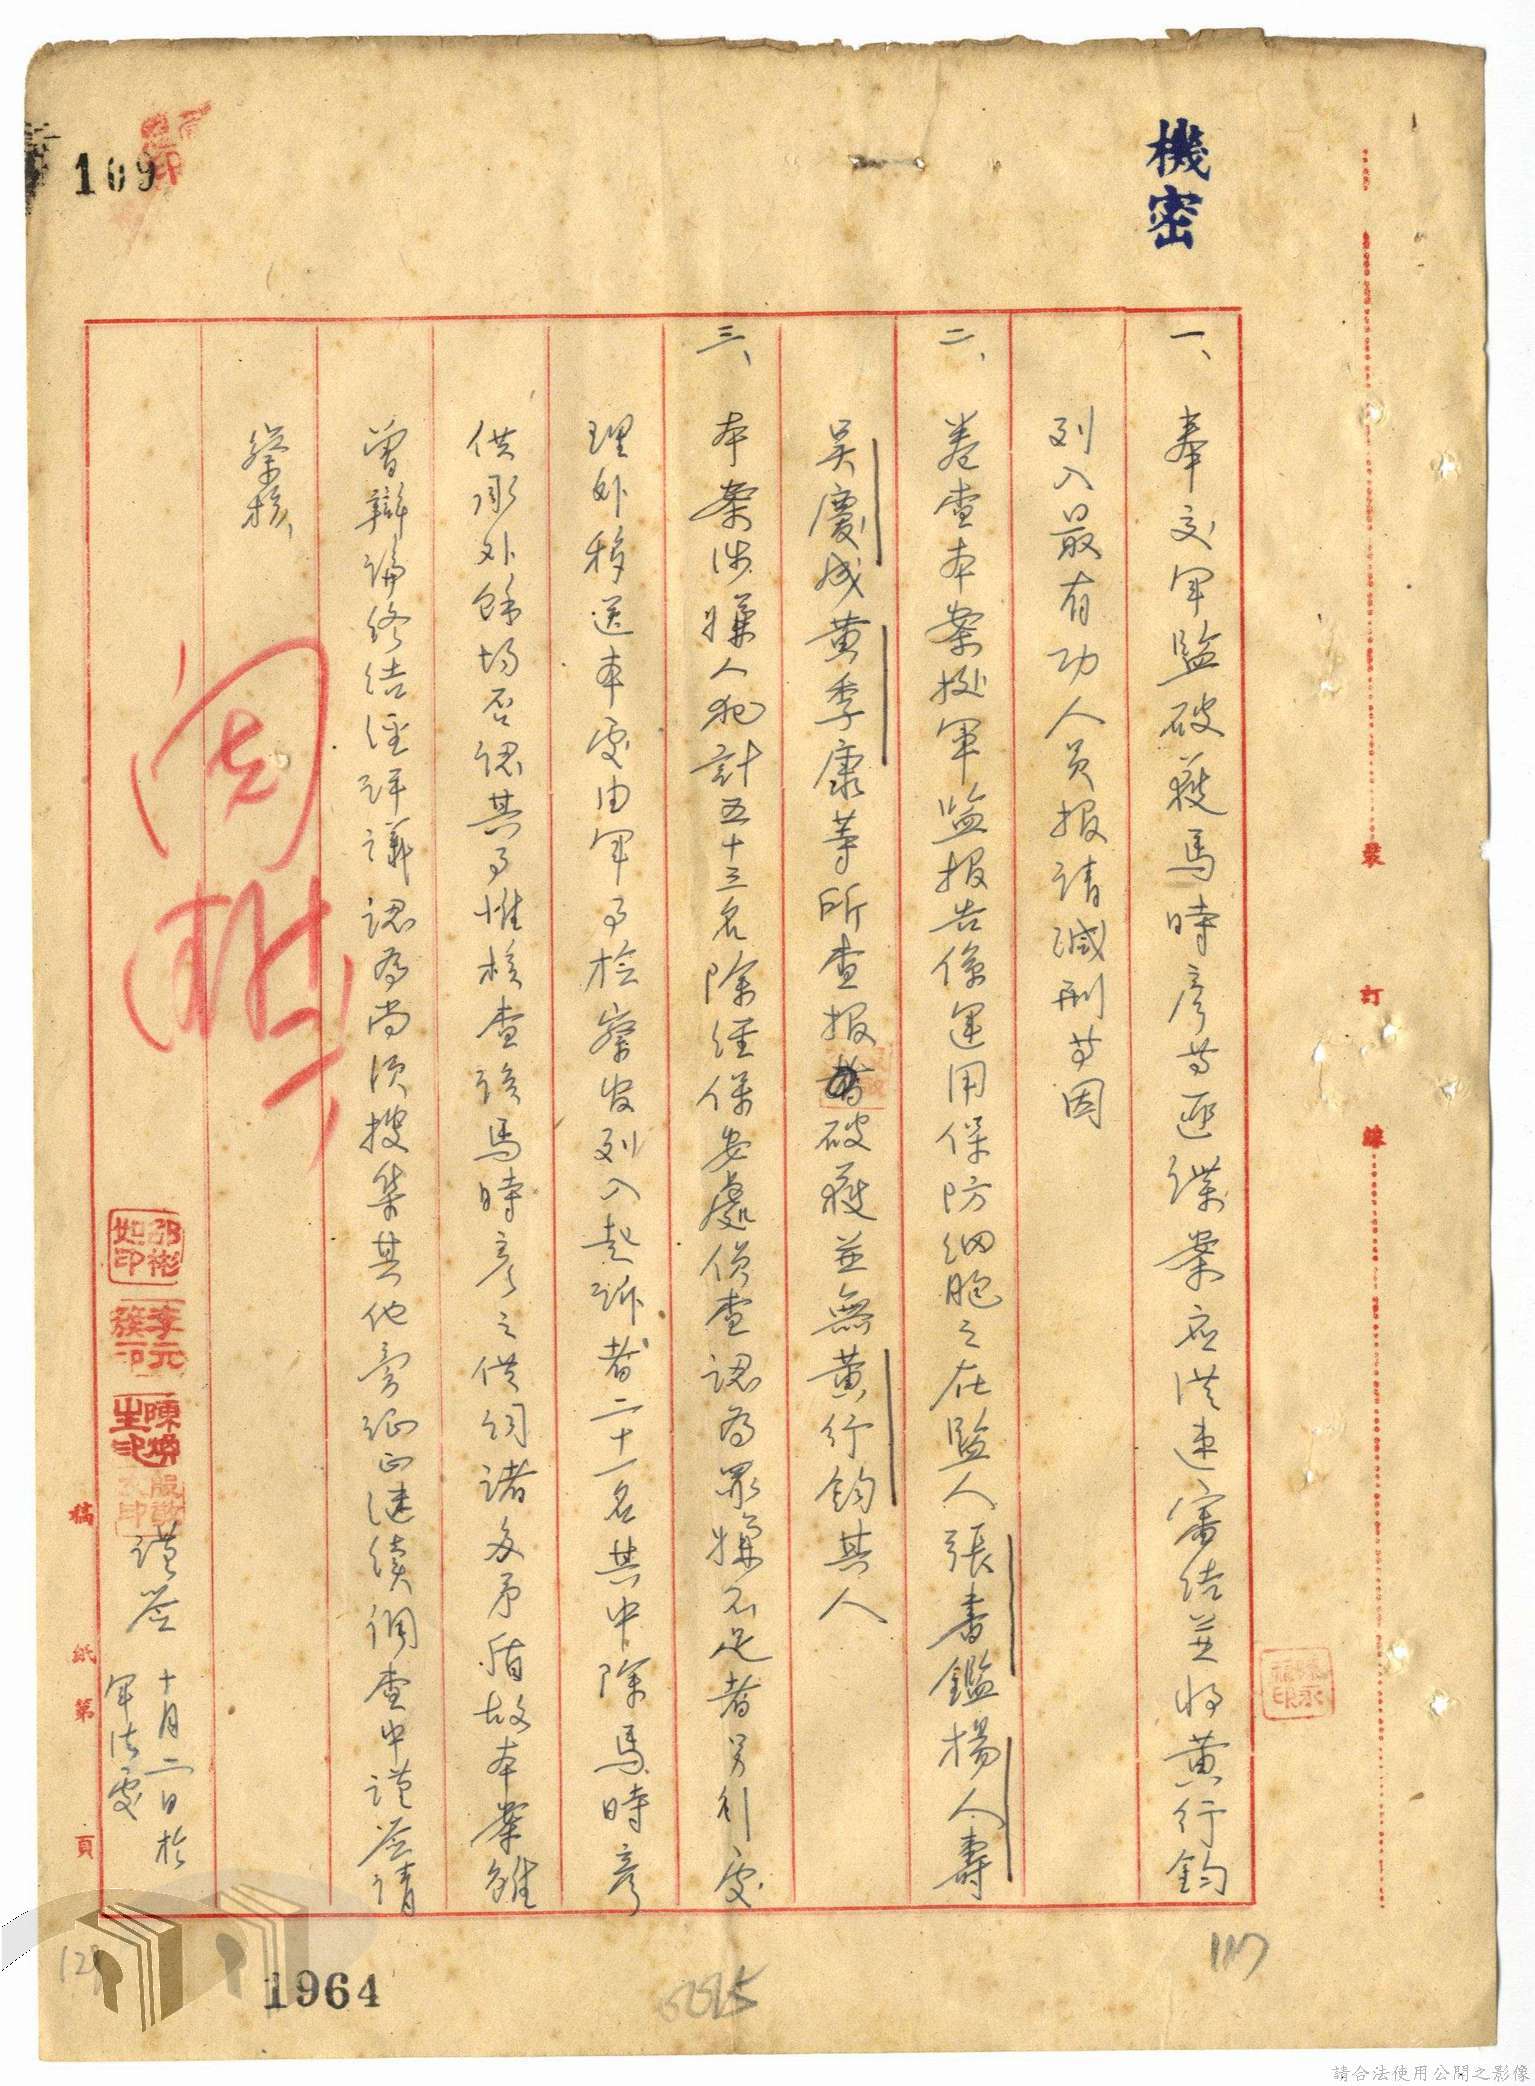 機密
109
一、奉交軍監破獲馬時彥等匪諜案應從速審結並將黃行鈞
列入最有功人員報請減刑等因
二、卷查本案據軍監報告係運用保防細胞之在監人張書鑑楊人壽
吳慶成黃季康等所查報破獲並無黃行鈞其人
三、本案涉嫌人犯計五十三名除經保安處偵查認為罪嫌不足者另行處
理外移送本處由軍事檢察官列入起訴者二十一名其中除馬時彥
供承外餘均否認其事惟核查該馬時彥之供詞諸多矛盾故本案雖
曾辯論終結經評議認為尚須搜集其他旁證正繼續調查中謹簽請
察核、
邵彬如印
李元簇印
陳煥生印
謹簽 十月二日於
軍法處
裝 訂 線
稿 紙 第 頁
1964
請合法使用公開之影像